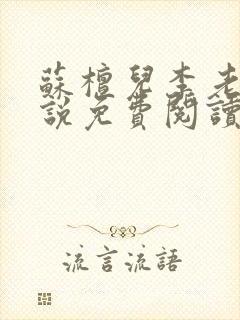 蘇檀兒李老
說免費閱讀
流言流語